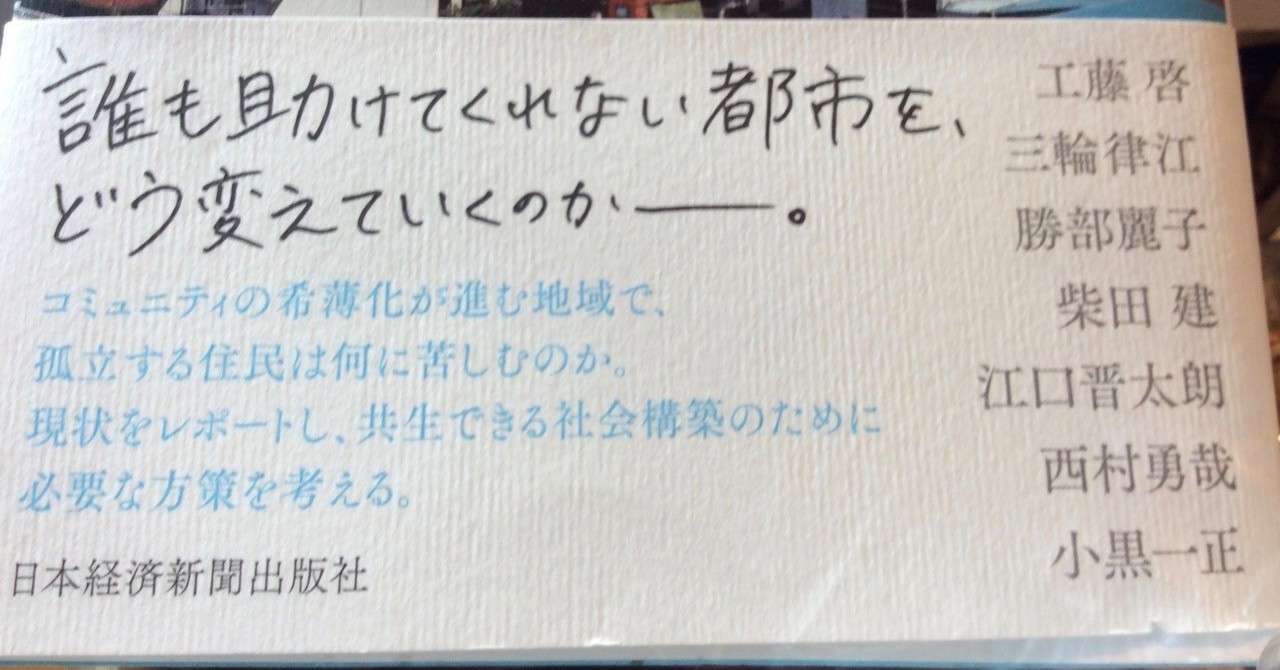 誰も助けてくれない都市を、
どう変えていくのか——。
コミュニティの希薄化が進む地域で、
孤立する住民は何に苦しむのか。
現状をレポートし、共生できる社会構築のために
必要な方策を考える。
日本経済新聞出版社
工藤 啓
三輪律江
勝部麗子
柴田 建
江口晋太朗
西村勇哉
小黒一正